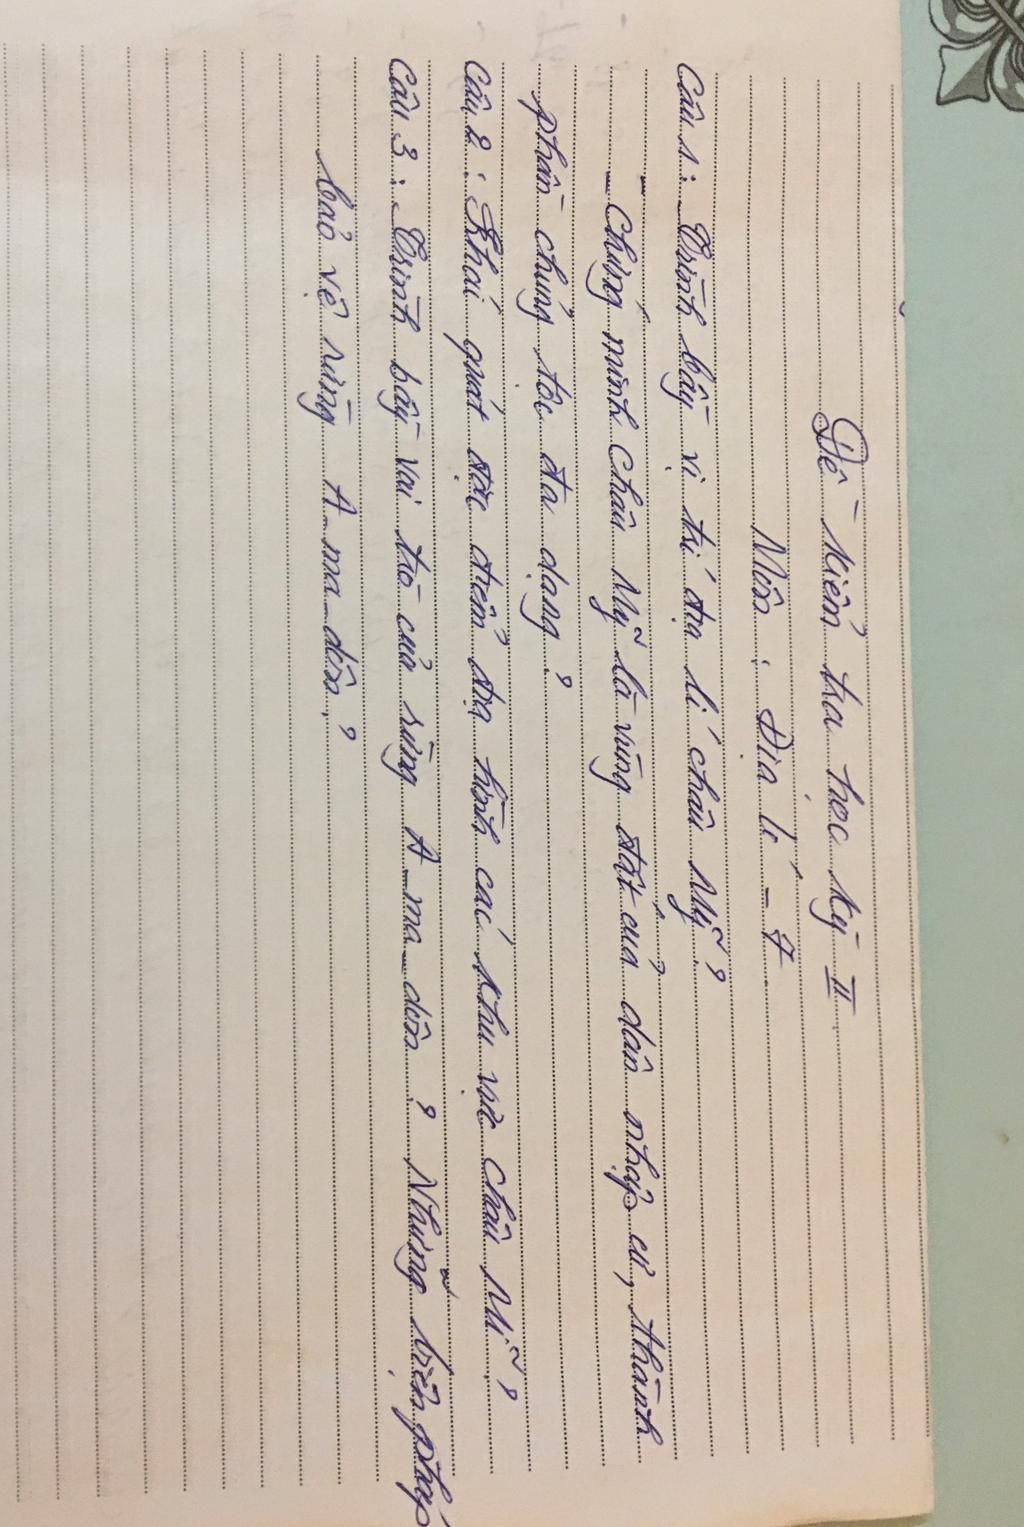 Đề kiểm tra học kỳ II
Môn : Địa lí - 7
Câu 1 : Trình bầy vị trí địa lí châu Mỹ ?
- Chứng minh châu Mỹ là vùng đất của dân nhập cư, thành
phần chủng tộc đa dạng ?
Câu 2 : Khái quát đặc điểm địa hình các khu vực châu Mĩ ?
Câu 3 : Trình bầy vai trò của rừng A-ma-dôn ? Những biện pháp
bảo vệ rừng A-ma-dôn ?